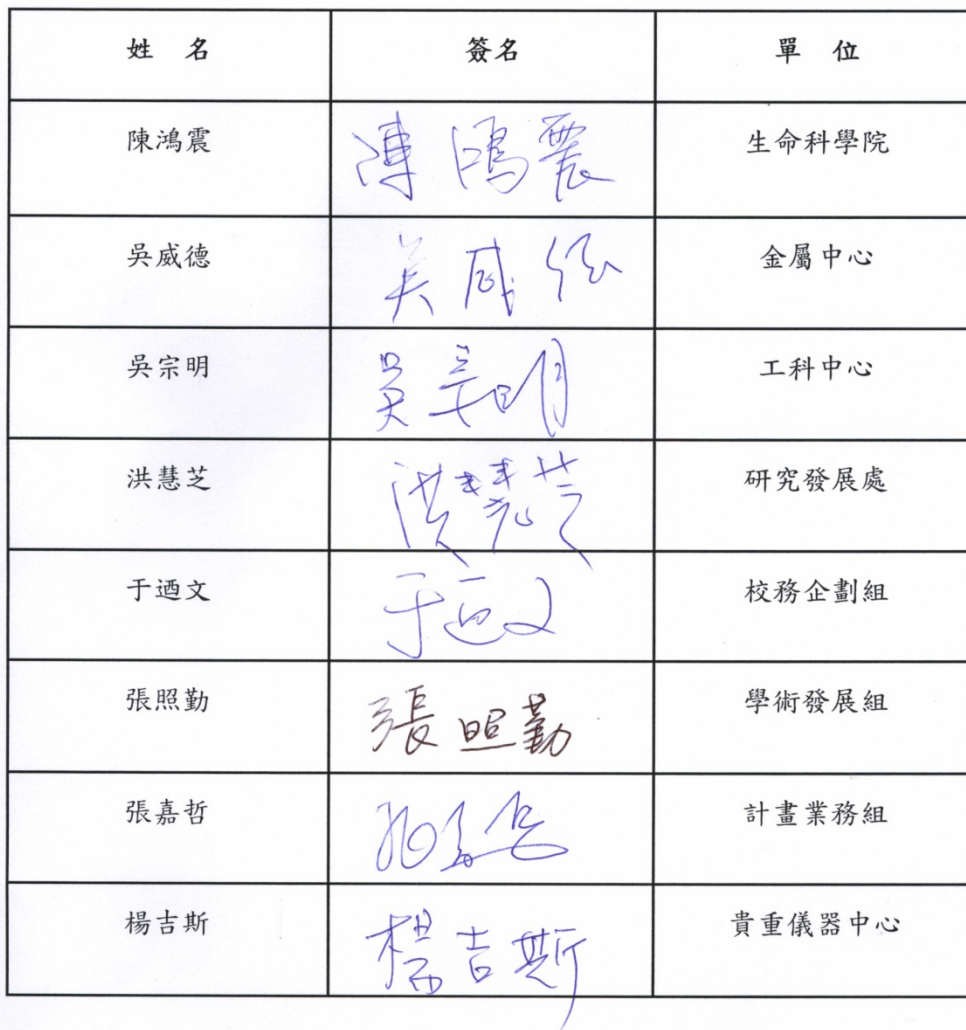 姓 名 簽名 單 位
陳鴻震 陳鴻震 生命科學院
吳威德 吳威德 金屬中心
吳宗明 吳宗明 工科中心
洪慧芝 洪慧芝 研究發展處
于迺文 于迺文 校務企劃組
張照勤 張照勤 學術發展組
張嘉哲 計畫業務組
楊吉斯 楊吉斯 貴重儀器中心